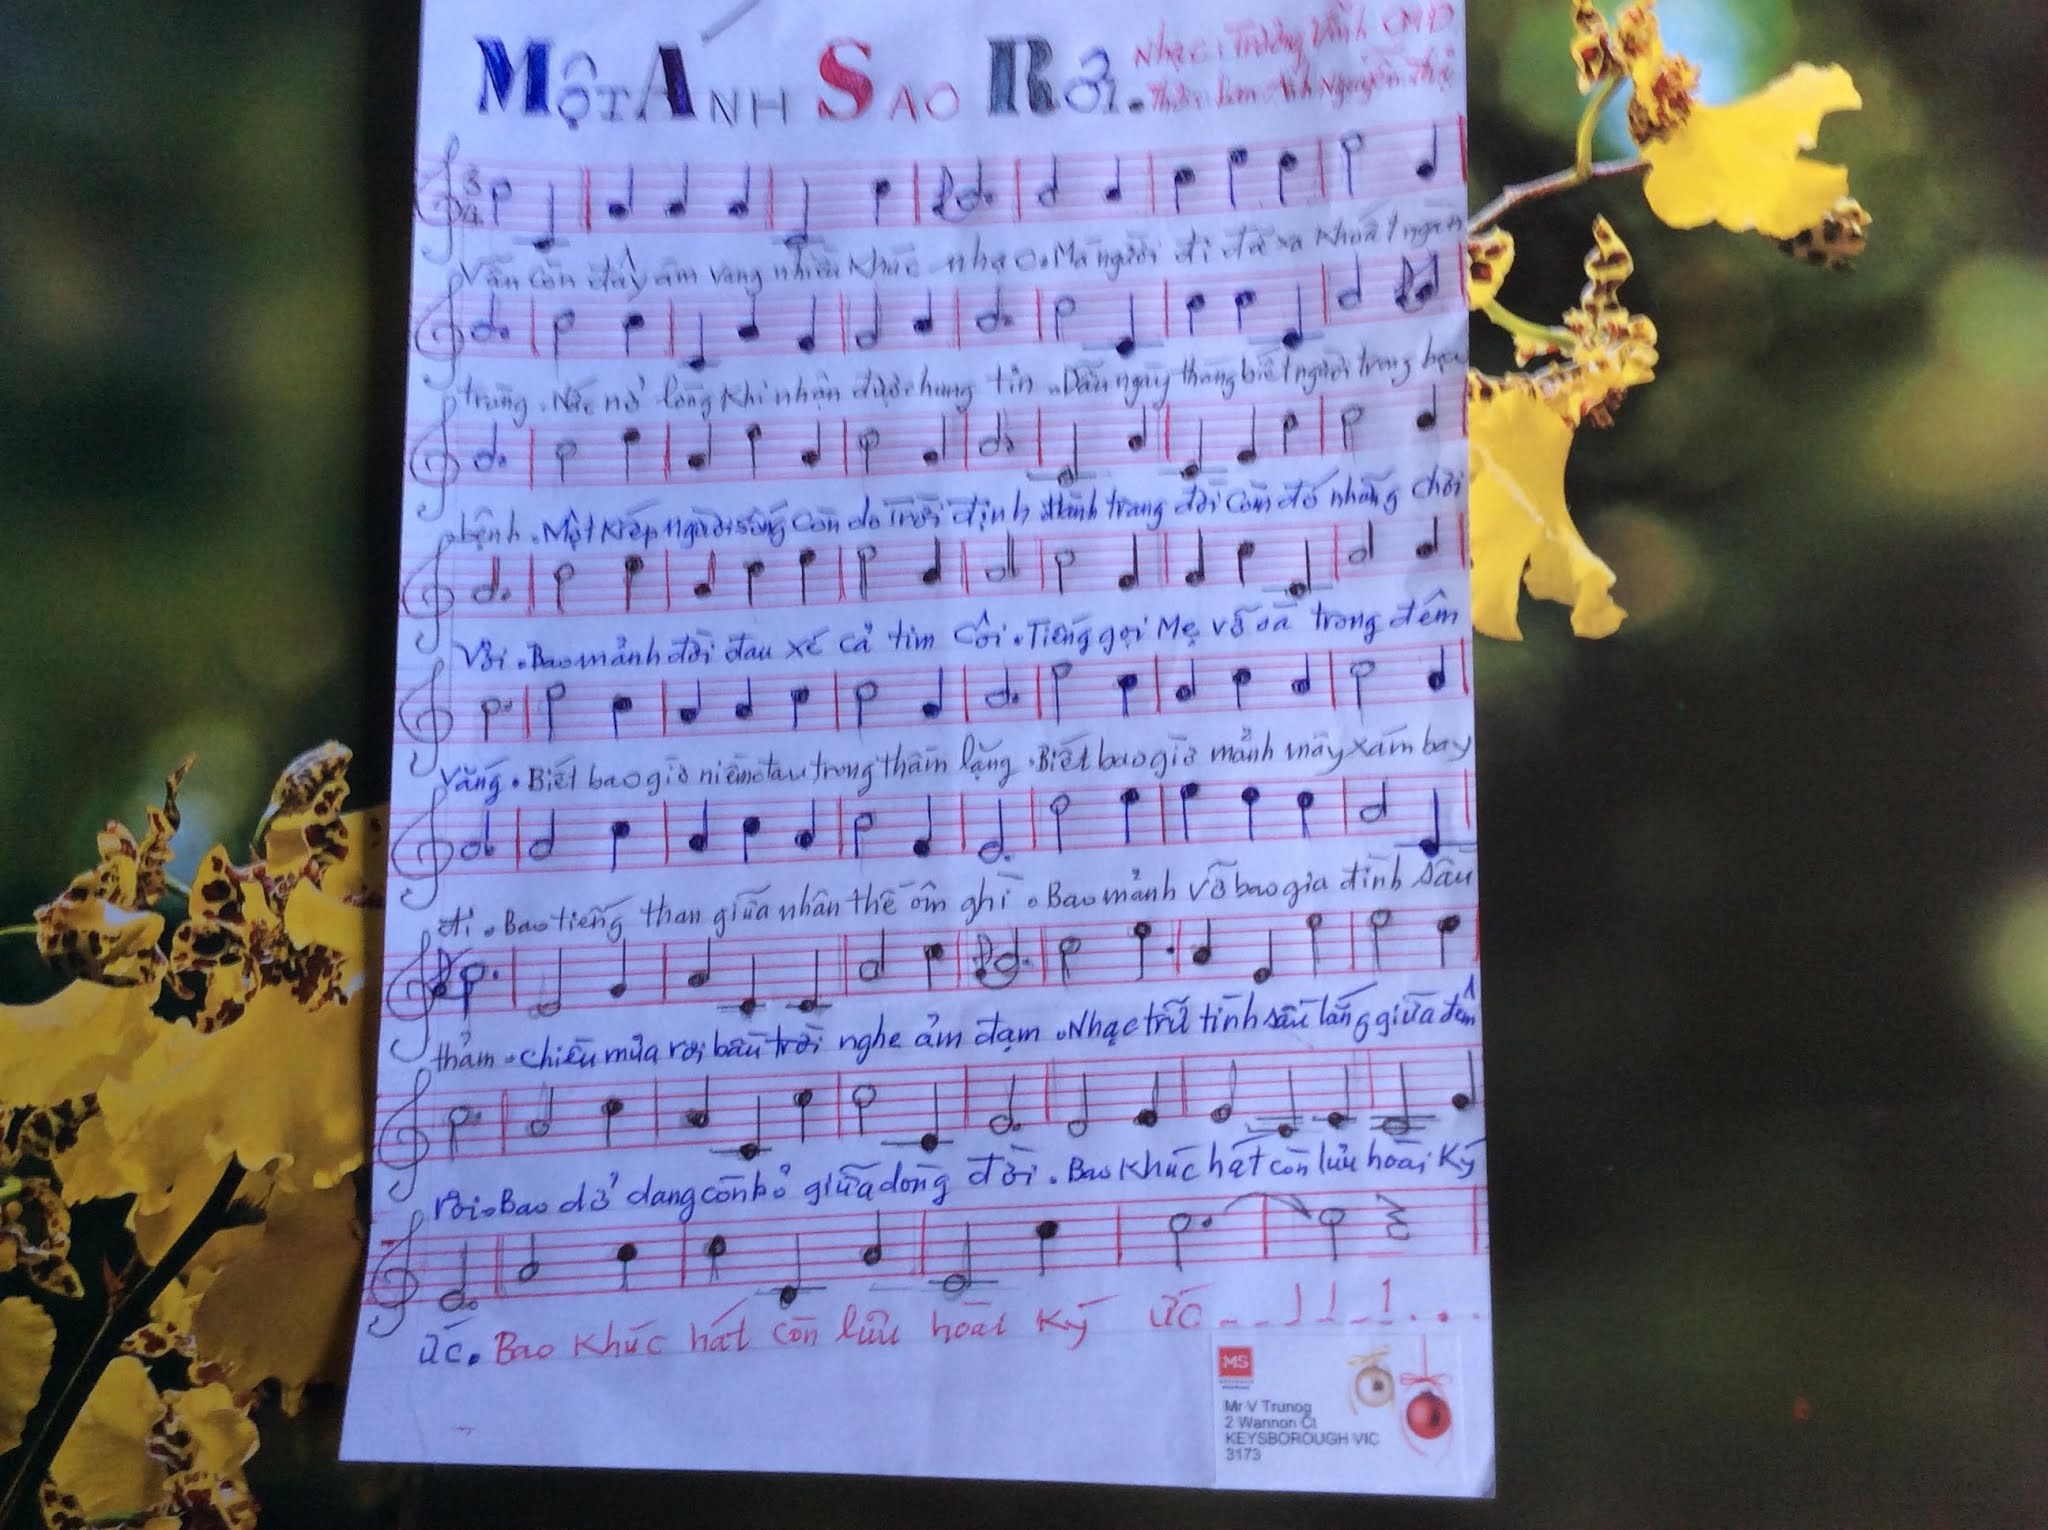 MỘT ÁNH SAO RƠI.
Nhạc: Trương Vĩnh CMĐ
Thơ: Nguyễn Thị
3
4
Vẫn còn đây âm vang nhiều khúc nhạc. Mà người đi đã xa khoắt ngàn
trùng. Nức nở lòng khi nhận được hung tin. Dẫu ngày tháng biết người trong bạo
bệnh. Một kiếp người sống còn do trời định trang đời còn đó những chơi
vơi. Bao mảnh đời đau xé cả tim côi. Tiếng gọi Mẹ vỡ oà trong đêm
vắng. Biết bao giờ niềm đau trong thầm lặng. Biết bao giờ mảnh mây xám bay
đi. Bao tiếng than giữa nhân thế ôm ghì. Bao mảnh vỡ bao gia đình sầu
thảm. Chiều mưa rơi bầu trời nghe ảm đạm. Nhạc trữ tình sâu lắng giữa đêm
rơi. Bao dở dang còn bỏ giữa dòng đời. Bao khúc hát còn lưu hoài ký
ức. Bao khúc hát còn lưu hoài ký ức
MS
Mr V Trunog
2 Wannon Ct
KEYSBOROUGH VIC
3173